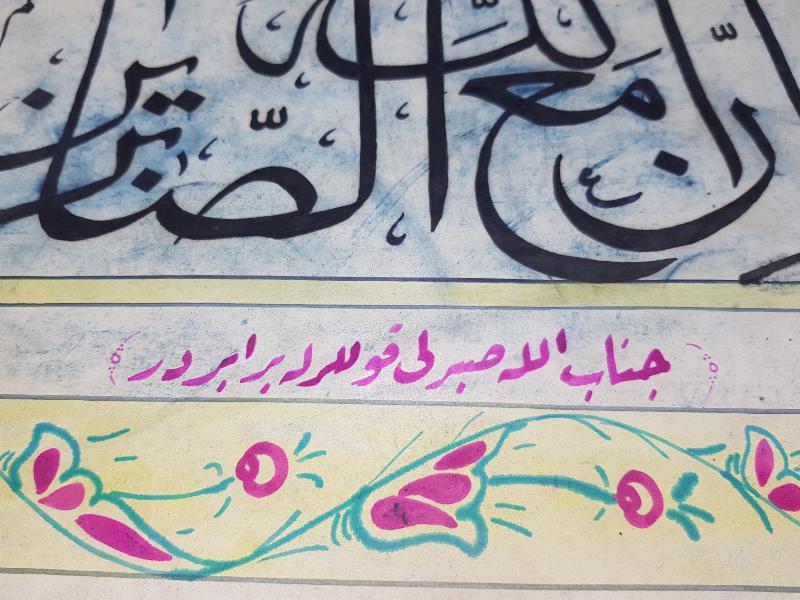 إِنَّ اللَّهَ مَعَ الصَّابِرِينَ
جناب الله صبرلى قوللرله برابردر